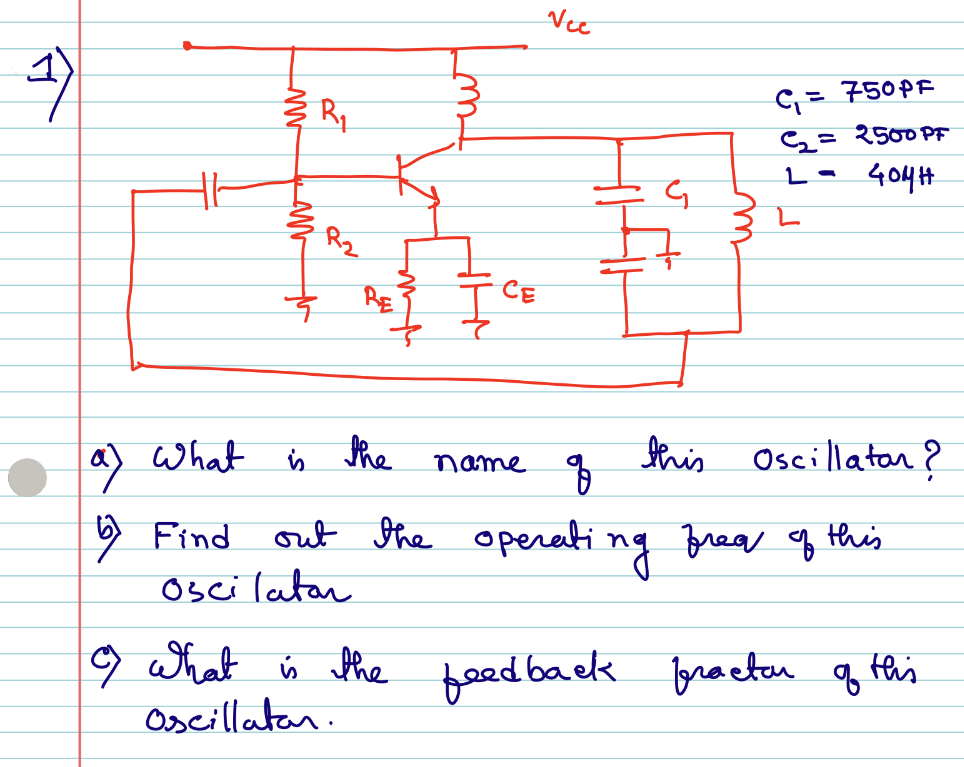 1)
Vcc
R1
C1 = 750PF
C2 = 2500PF
L = 40μH
C1
L
R2
RE
CE
a) What is the name of this Oscillator?
b) Find out the operating freq of this
oscilator
c) What is the feedback fractor of this
Oscillator.